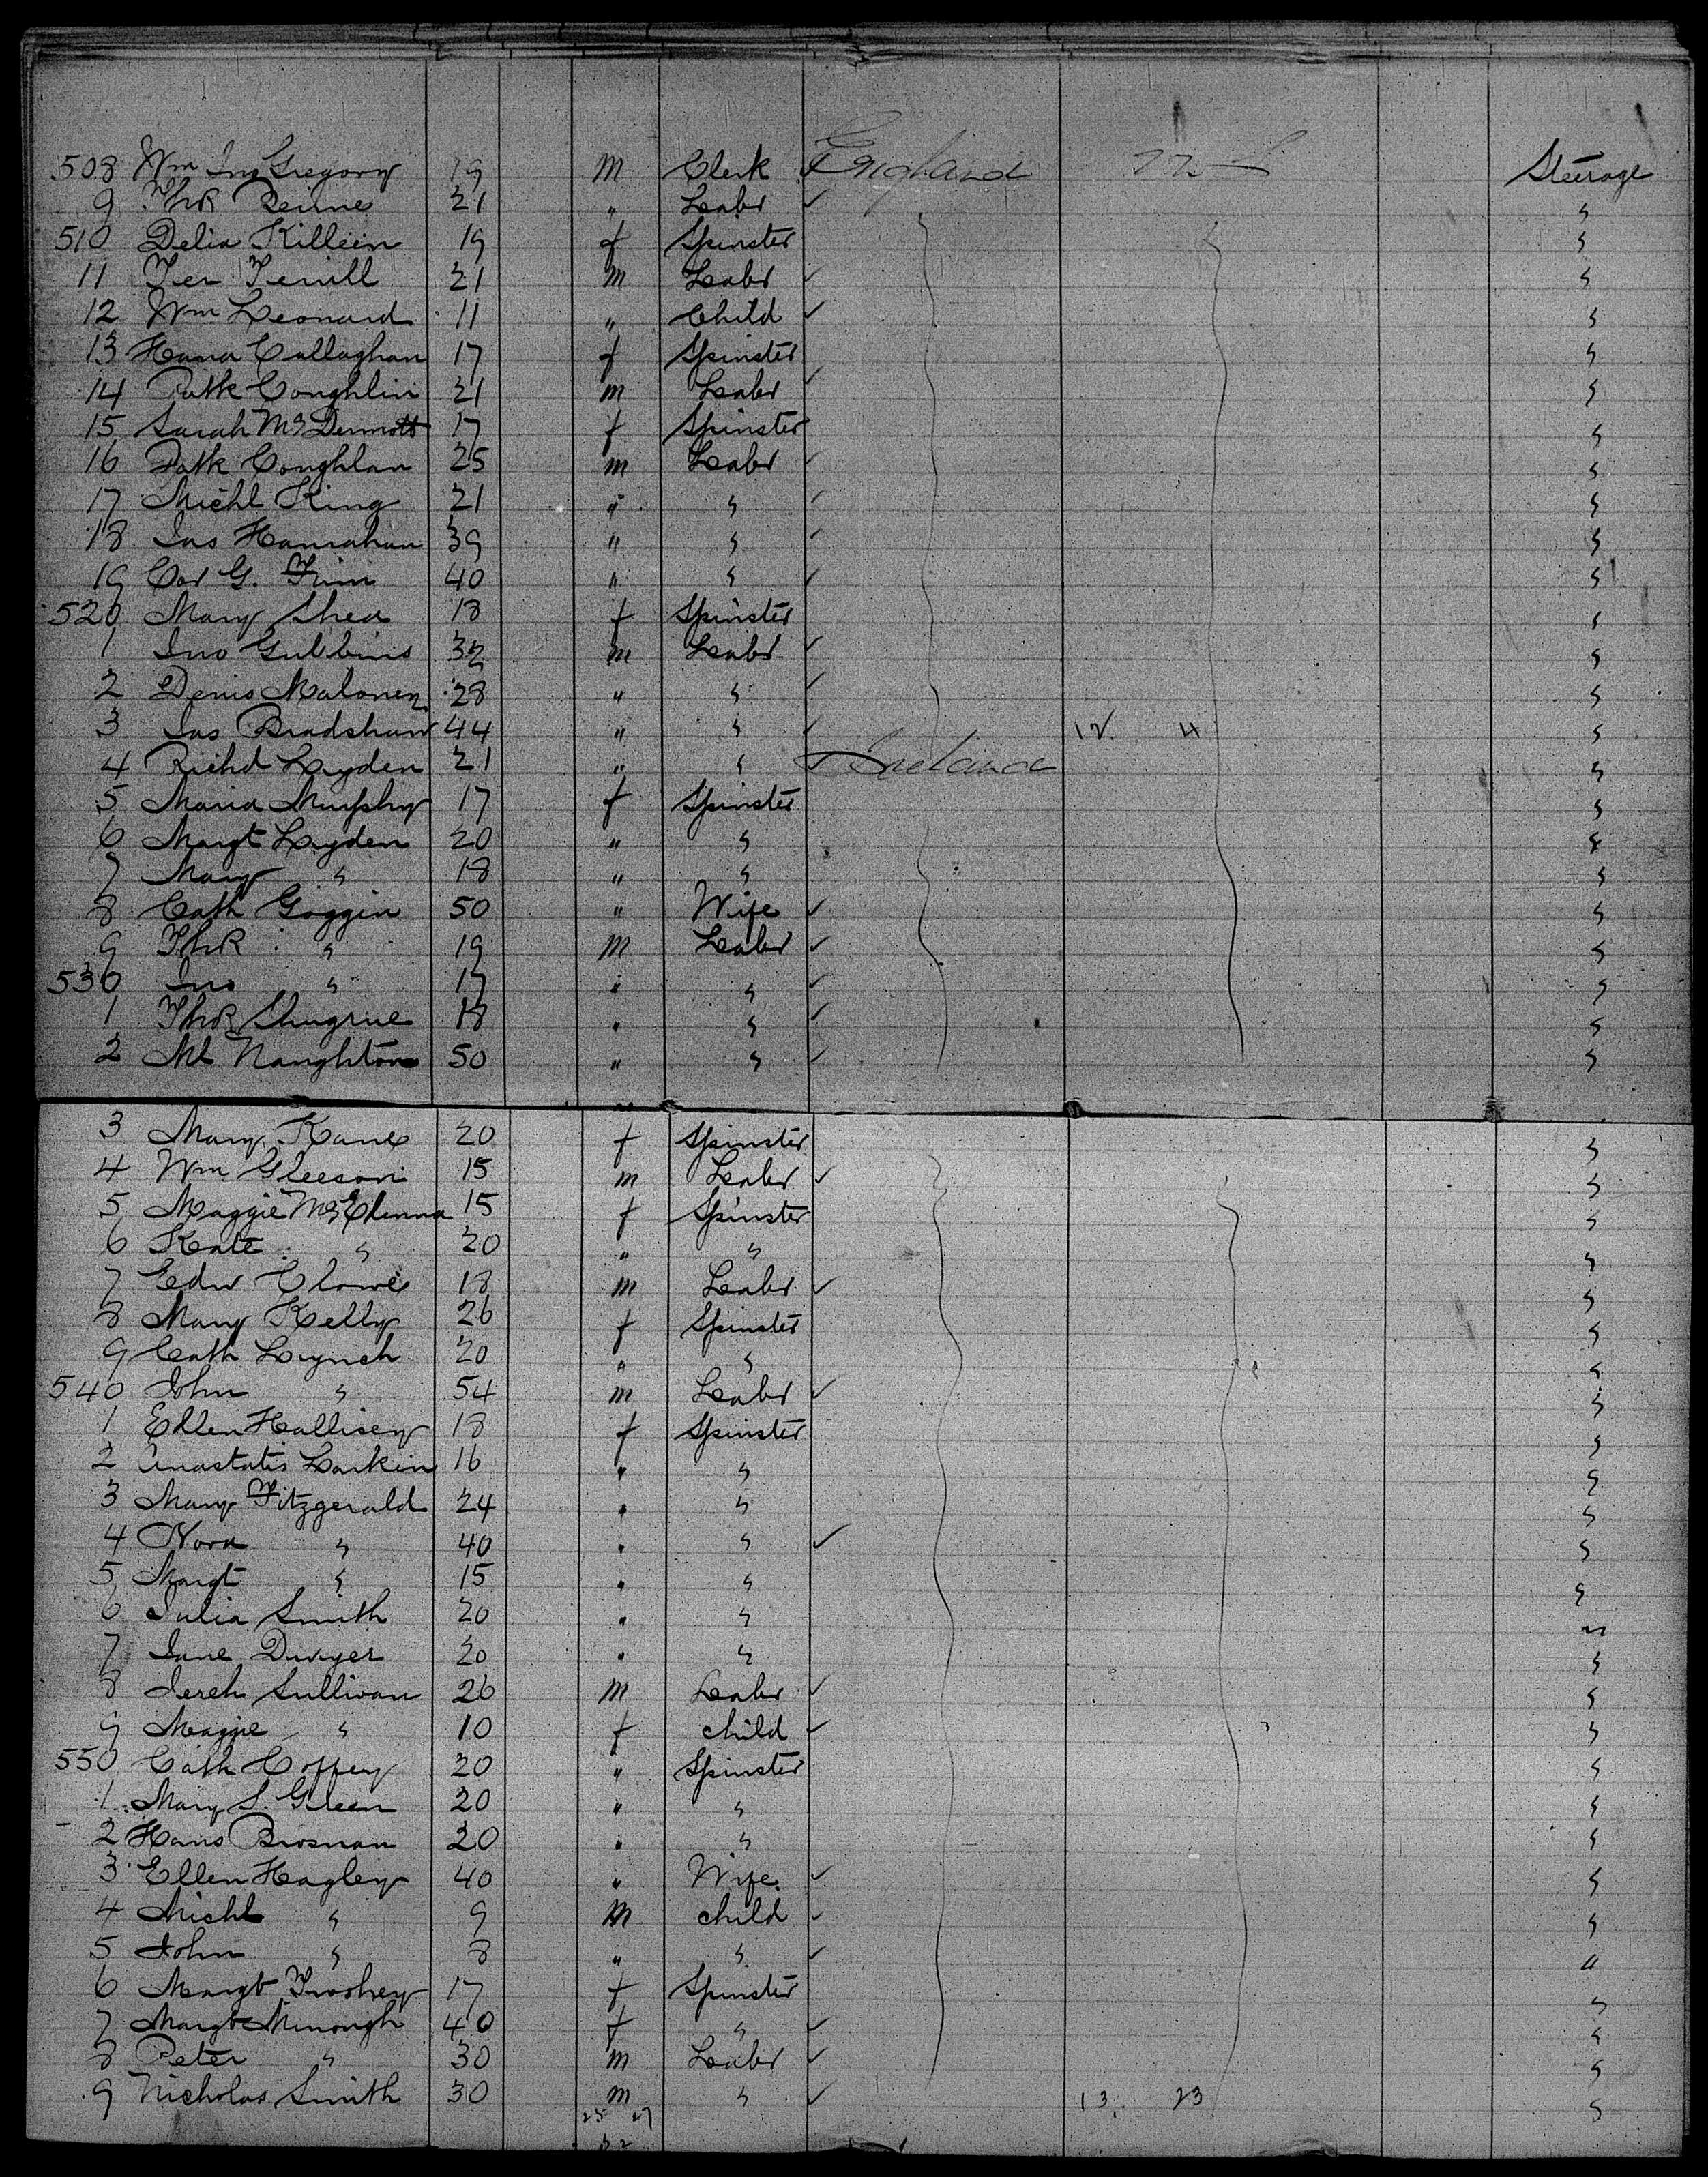 508 Wm Jno Gregory 19 M Clerk England U S Steerage
9 Thos 21 " Labr ✓ "
510 Delia Killeen 19 f Spinster "
11 21 m Labr ✓ "
12 Wm Leonard 11 " Child ✓ "
13 Hana Callaghan 17 f Spinster "
14 Patk Coughlin 21 m Labr ✓ "
15 Sarah McDermott 17 f Spinster "
16 Patk Coughlan 25 m Labr ✓ "
17 Michl King 21 " " ✓ "
18 Jas Hanrahan 39 " " ✓ "
19 G. Finn 40 " " ✓ "
520 Mary Shea 18 f Spinster "
1 Jno Gubbins 32 m Labr ✓ "
2 Denis Maloney 28 " " ✓ "
3 Jas Bradshaw 44 " " ✓ 12 4 "
4 Richd Lyden 21 " " Ireland "
5 Maria Murphy 17 f Spinster "
6 Margt Lyden 20 " " "
7 Mary " 18 " " "
8 Cath Goggin 50 " Wife ✓ "
9 Thos " 19 m Labr ✓ "
530 Jno " 17 " " ✓ "
1 Thos Shugrue 18 " " ✓ "
2 Ml Naughton 50 " " ✓ "
3 Mary Kane 20 f Spinster "
4 Wm Gleeson 15 m Labr ✓ "
5 Maggie 15 f Spinster "
6 Kate " 20 " " "
7 Edw 18 m Labr ✓ "
8 Mary Kelly 26 f Spinster "
9 Cath Lynch 20 " " "
540 John " 54 m Labr ✓ "
1 Ellen Hallisey 18 f Spinster "
2 Anastatis Larkin 16 " " "
3 Mary Fitzgerald 24 " " "
4 Nora " 40 " " ✓ "
5 Margt " 15 " " "
6 Julia Smith 20 " " "
7 Jane Dwyer 20 " " "
8 Jereh Sullivan 26 m Labr ✓ "
9 Maggie " 10 f child ✓ "
550 Cath Coffey 20 " Spinster "
1 Mary S. Green 20 " " "
2 Brosnan 20 " " "
3 Ellen Hagley 40 " Wife ✓ "
4 Michl " 9 m child ✓ "
5 John " 8 " " ✓ "
6 Margt 17 f Spinster "
7 Margt Minough 40 f " ✓ "
8 Peter " 30 m Labr ✓ "
9 Nicholas Smith 30 m " ✓ 13 23 "
25 27
52